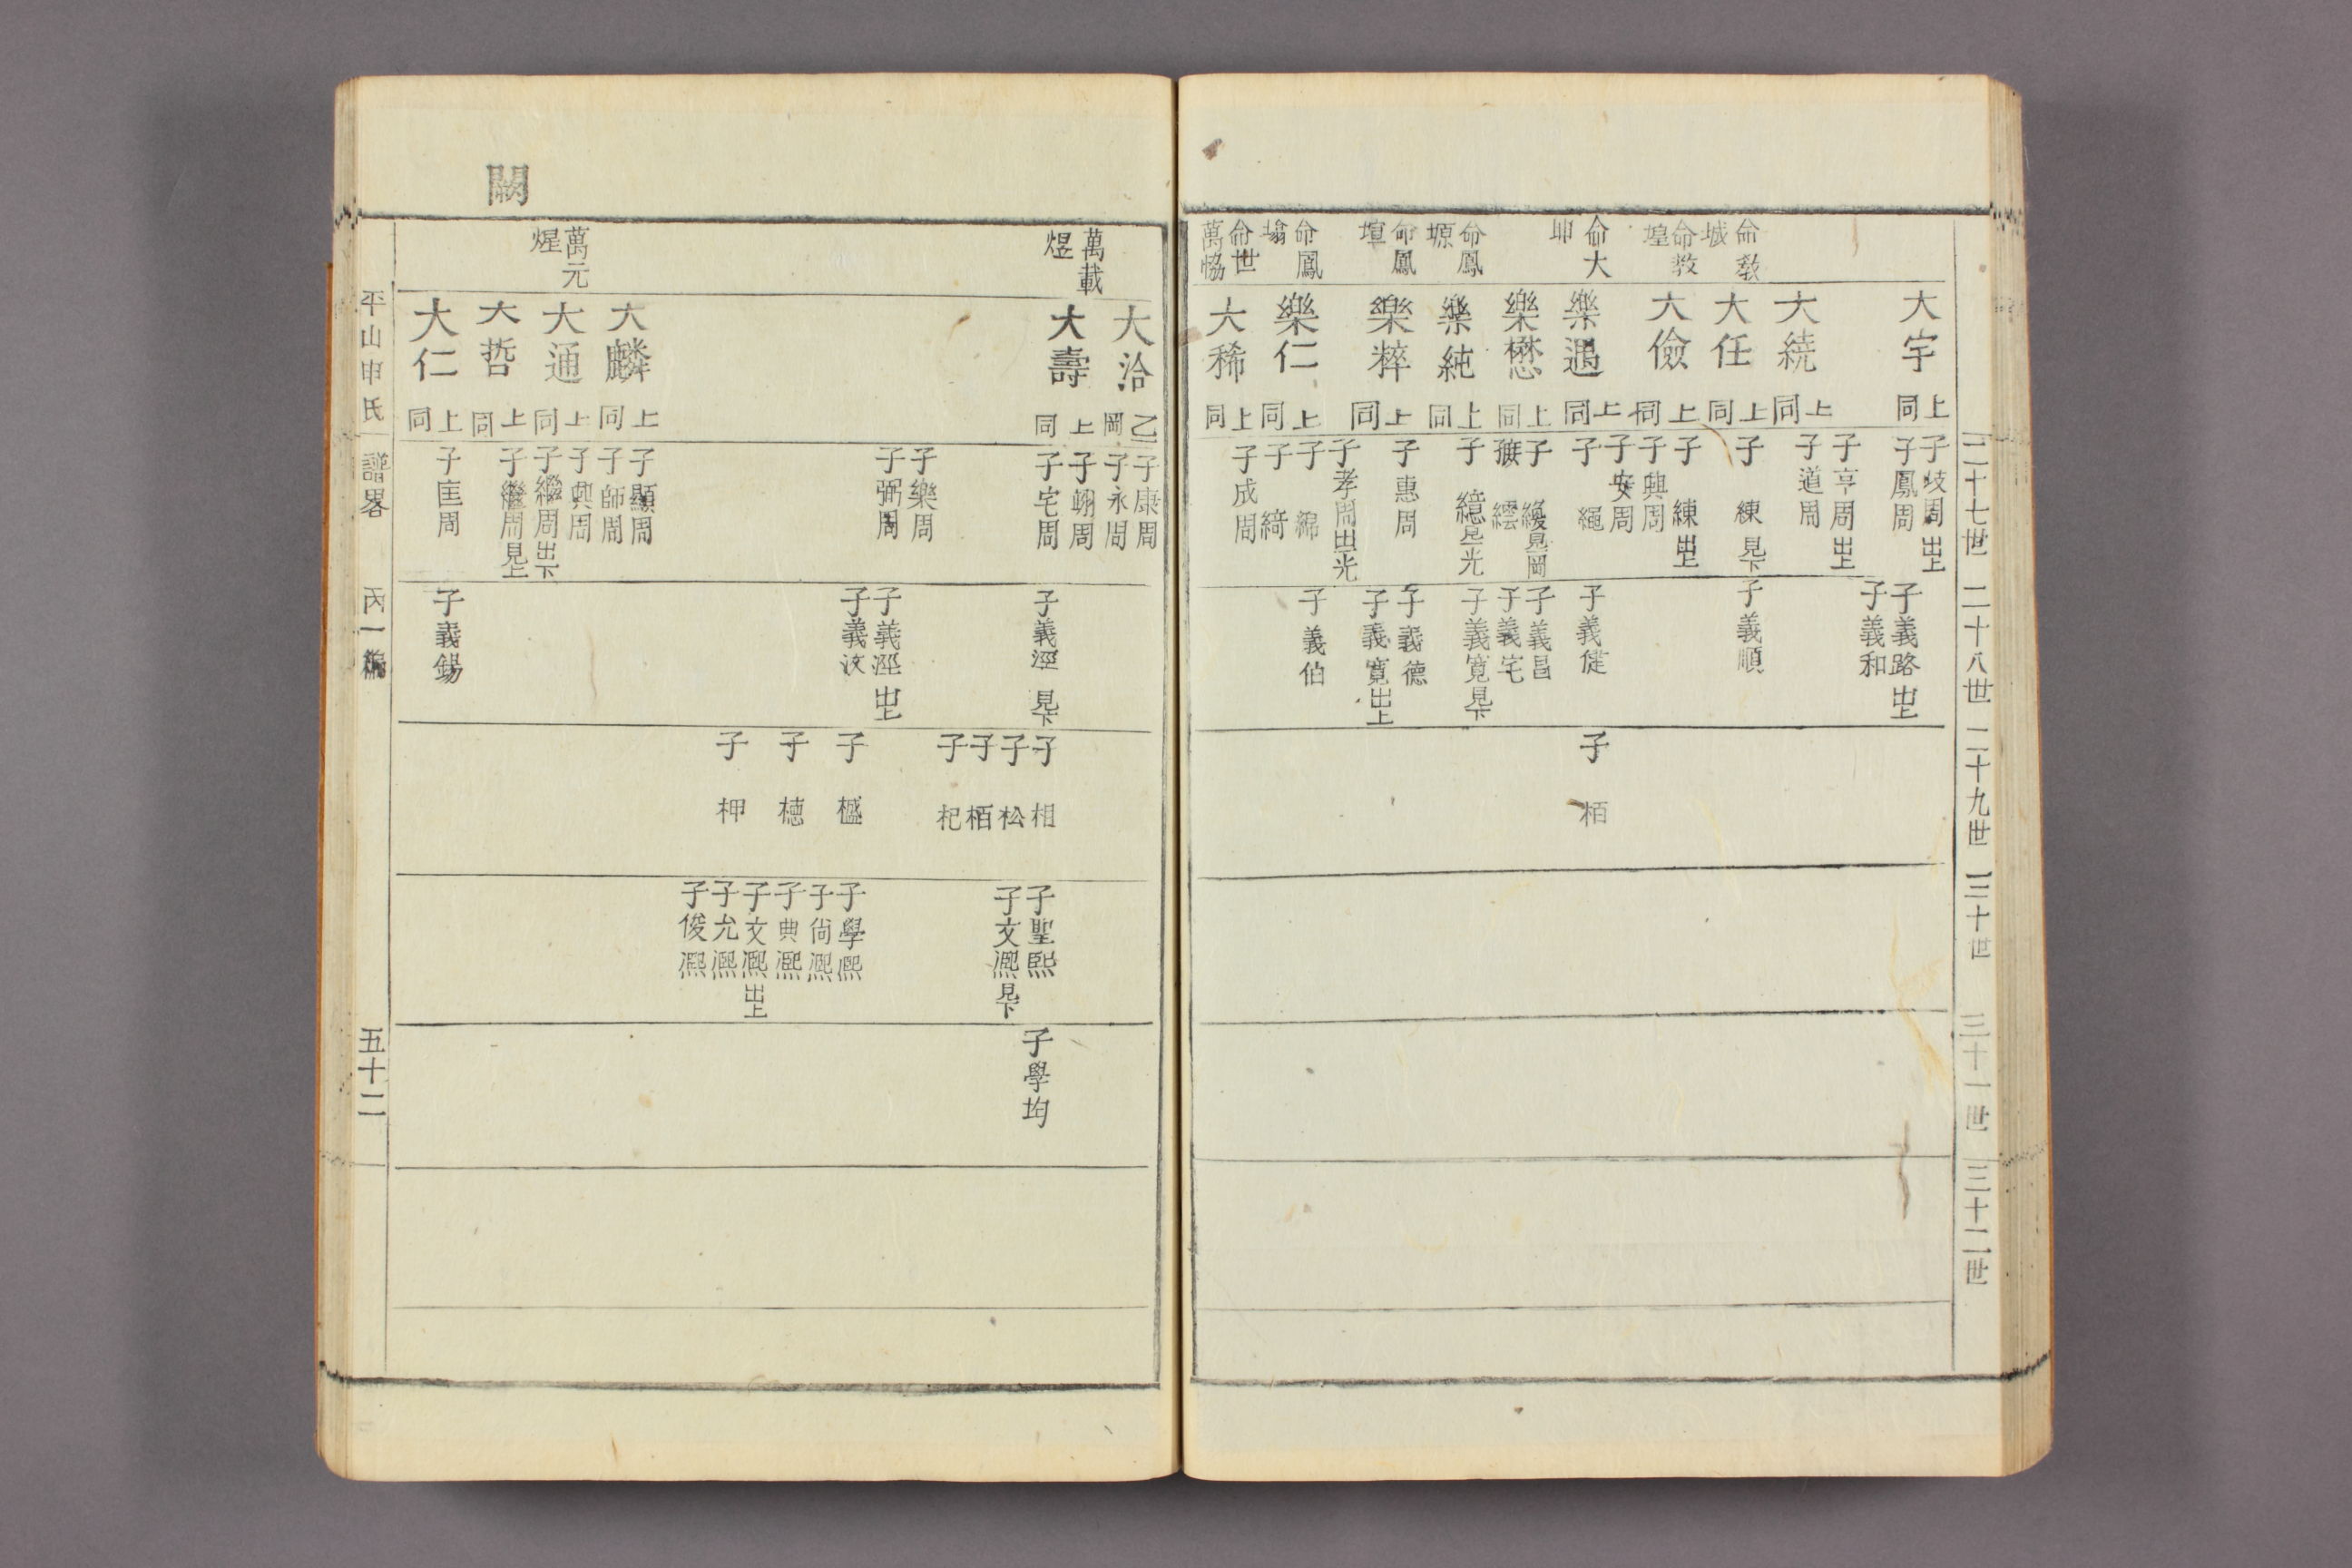 二十七世
二十八世
二十九世
三十世
三十一世
三十二世
命敎
城
命敎
堭
命大
坤
命鳳
塬
命鳳
壇
命鳳
塕
命世
萬恊
大宇
上同
大統
上同
大任
上同
大儉
上同
樂遇
上同
樂懋
上同
樂純
上同
樂粹
上同
樂仁
上同
大稀
上同
子歧周出上
子鳳周
子亨周出上
子道周
子練見下
子練出上
子興周
子安周
子繩
子纋見岡
子繧
子繶見光
子惠周
子孝周出光
子綿
子綺
子成周
子義路出上
子義和
子義順
子義健
子義昌
子義宅
子義寬見下
子義德
子義寬出上
子義伯
子栢
萬載
煜
萬元
煋
闕
大洽
乙岡
大壽
上同
大麟
上同
大通
上同
大哲
上同
大仁
上同
子康周
子永周
子翊周
子宅周
子樂周
子弼周
子顯周
子師周
子興周
子繼周出下
子繼周見上
子匡周
子義溼見下
子義溼出上
子義汶
子義錫
子相
子松
子栢
子杞
子橀
子橞
子柙
子聖熙
子文熙見下
子學熙
子尙熙
子典熙
子文熙出上
子允熙
子俊熙
子學均
平山申氏
譜畧
丙一編
五十二